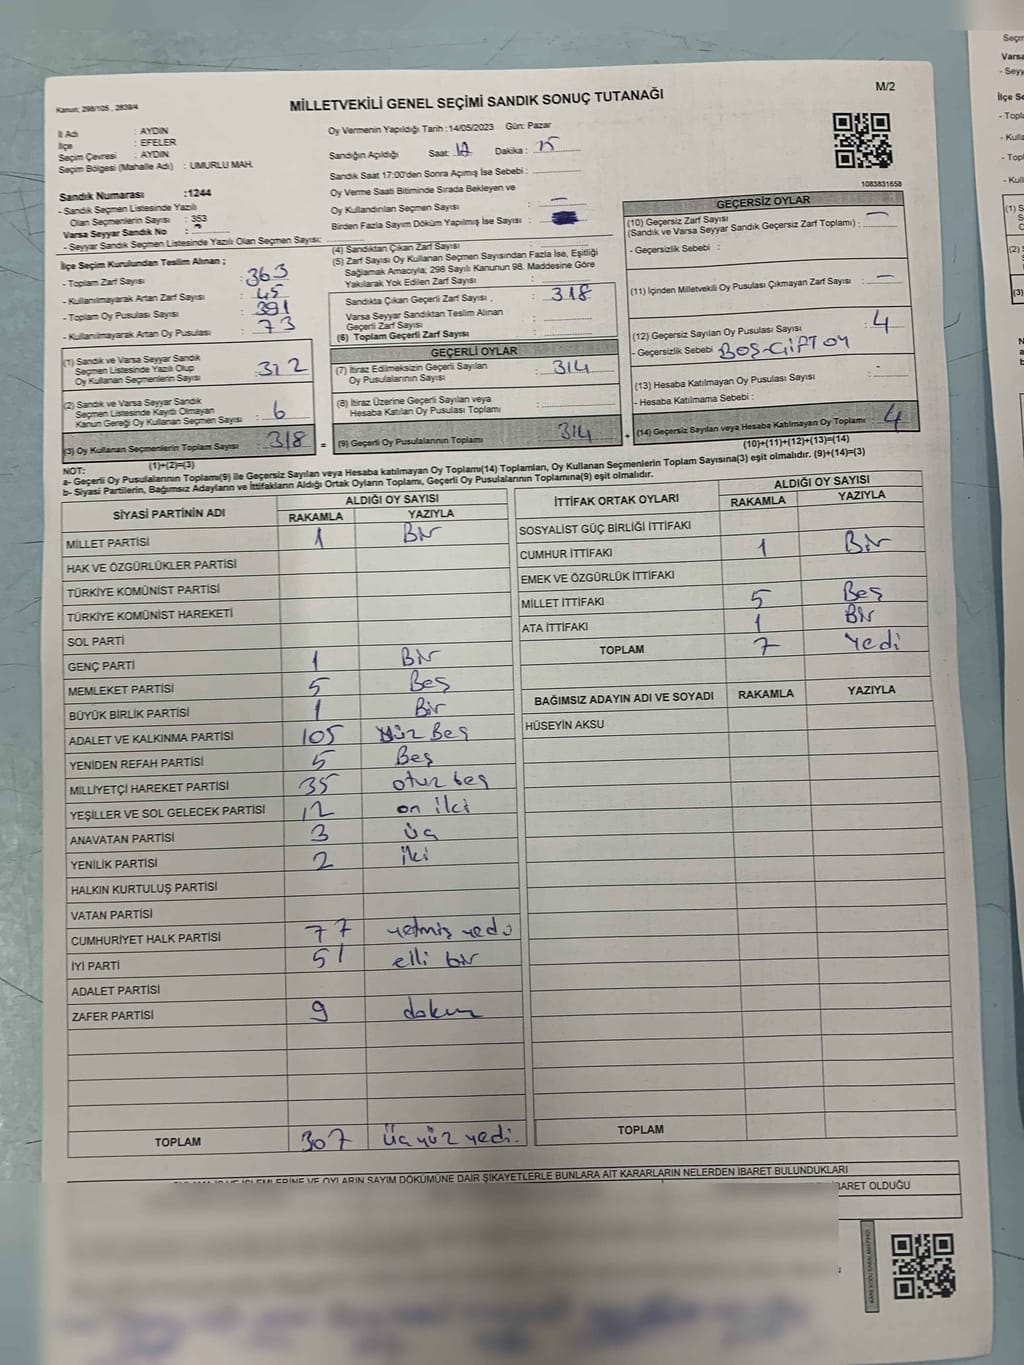 Kanun: 298/105 , 2839/4
MİLLETVEKİLİ GENEL SEÇİMİ SANDIK SONUÇ TUTANAĞI
M/2
İl Adı : AYDIN
İlçe : EFELER
Seçim Çevresi : AYDIN
Seçim Bölgesi (Mahalle Adı) : UMURLU MAH.
Oy Vermenin Yapıldığı Tarih :14/05/2023 Gün: Pazar
Sandığın Açıldığı Saat: 17 Dakika : 15
Sandık Saat 17:00'den Sonra Açımış İse Sebebi :
Oy Verme Saati Bitiminde Sırada Bekleyen ve
Oy Kullandırılan Seçmen Sayısı : —
Birden Fazla Sayım Döküm Yapılmış İse Sayısı :
1083831658
Sandık Numarası :1244
- Sandık Seçmen Listesinde Yazılı
Olan Seçmenlerin Sayısı : 353
Varsa Seyyar Sandık No :
- Seyyar Sandık Seçmen Listesinde Yazılı Olan Seçmen Sayısı:
İlçe Seçim Kurulundan Teslim Alınan ;
- Toplam Zarf Sayısı : 363
- Kullanılmayarak Artan Zarf Sayısı : 45
- Toplam Oy Pusulası Sayısı : 391
- Kullanılmayarak Artan Oy Pusulası : 73
(1) Sandık ve Varsa Seyyar Sandık
Seçmen Listesinde Yazılı Olup
Oy Kullanan Seçmenlerin Sayısı : 312
(2) Sandık ve Varsa Seyyar Sandık
Seçmen Listesinde Kayıtlı Olmayan
Kanun Gereği Oy Kullanan Seçmen Sayısı : 6
(3) Oy Kullanan Seçmenlerin Toplam Sayısı : 318 =
(1)+(2)=(3)
(4) Sandıktan Çıkan Zarf Sayısı :
(5) Zarf Sayısı Oy Kullanan Seçmen Sayısından Fazla İse, Eşitliği
Sağlamak Amacıyla; 298 Sayılı Kanunun 98. Maddesine Göre
Yakılarak Yok Edilen Zarf Sayısı :
Sandıkta Çıkan Geçerli Zarf Sayısı , : 318
Varsa Seyyar Sandıktan Teslim Alınan
Geçerli Zarf Sayısı :
(6) Toplam Geçerli Zarf Sayısı :
GEÇERLİ OYLAR
(7) İtiraz Edilmeksizin Geçerli Sayılan
Oy Pusulalarının Sayısı : 314
(8) İtiraz Üzerine Geçerli Sayılan veya
Hesaba Katılan Oy Pusulası Toplamı :
(9) Geçerli Oy Pusulalarının Toplamı : 314 +
GEÇERSİZ OYLAR
(10) Geçersiz Zarf Sayısı
(Sandık ve Varsa Seyyar Sandık Geçersiz Zarf Toplamı) : —
- Geçersizlik Sebebi :
(11) İçinden Milletvekili Oy Pusulası Çıkmayan Zarf Sayısı : —
(12) Geçersiz Sayılan Oy Pusulası Sayısı : 4
- Geçersizlik Sebebi : BOŞ-ÇİFT OY
(13) Hesaba Katılmayan Oy Pusulası Sayısı :
- Hesaba Katılmama Sebebi :
(14) Geçersiz Sayılan veya Hesaba Katılmayan Oy Toplamı : 4
(10)+(11)+(12)+(13)=(14)
NOT:
a- Geçerli Oy Pusulalarının Toplamı(9) ile Geçersiz Sayılan veya Hesaba katılmayan Oy Toplamı(14) Toplamları, Oy Kullanan Seçmenlerin Toplam Sayısına(3) eşit olmalıdır. (9)+(14)=(3)
b- Siyasi Partilerin, Bağımsız Adayların ve İttifakların Aldığı Ortak Oyların Toplamı, Geçerli Oy Pusulalarının Toplamına(9) eşit olmalıdır.
SİYASİ PARTİNİN ADI ALDIĞI OY SAYISI
RAKAMLA YAZIYLA
MİLLET PARTİSİ 1 Bir
HAK VE ÖZGÜRLÜKLER PARTİSİ
TÜRKİYE KOMÜNİST PARTİSİ
TÜRKİYE KOMÜNİST HAREKETİ
SOL PARTİ
GENÇ PARTİ 1 Bir
MEMLEKET PARTİSİ 5 Beş
BÜYÜK BİRLİK PARTİSİ 1 Bir
ADALET VE KALKINMA PARTİSİ 105 Yüz Beş
YENİDEN REFAH PARTİSİ 5 Beş
MİLLİYETÇİ HAREKET PARTİSİ 35 otuz beş
YEŞİLLER VE SOL GELECEK PARTİSİ 12 on iki
ANAVATAN PARTİSİ 3 üç
YENİLİK PARTİSİ 2 iki
HALKIN KURTULUŞ PARTİSİ
VATAN PARTİSİ
CUMHURİYET HALK PARTİSİ 77 yetmiş yedi
İYİ PARTİ 51 elli bir
ADALET PARTİSİ
ZAFER PARTİSİ 9 dokuz
TOPLAM 307 üç yüz yedi.
İTTİFAK ORTAK OYLARI ALDIĞI OY SAYISI
RAKAMLA YAZIYLA
SOSYALİST GÜÇ BİRLİĞİ İTTİFAKI
CUMHUR İTTİFAKI 1 Bir
EMEK VE ÖZGÜRLÜK İTTİFAKI
MİLLET İTTİFAKI 5 Beş
ATA İTTİFAKI 1 Bir
TOPLAM 7 Yedi
BAĞIMSIZ ADAYIN ADI VE SOYADI RAKAMLA YAZIYLA
HÜSEYİN AKSU
TOPLAM
İŞLEMLERİNE VE OYLARIN SAYIM DÖKÜMÜNE DAİR ŞİKAYETLERLE BUNLARA AİT KARARLARIN NELERDEN İBARET BULUNDUKLARI
İBARET OLDUĞU